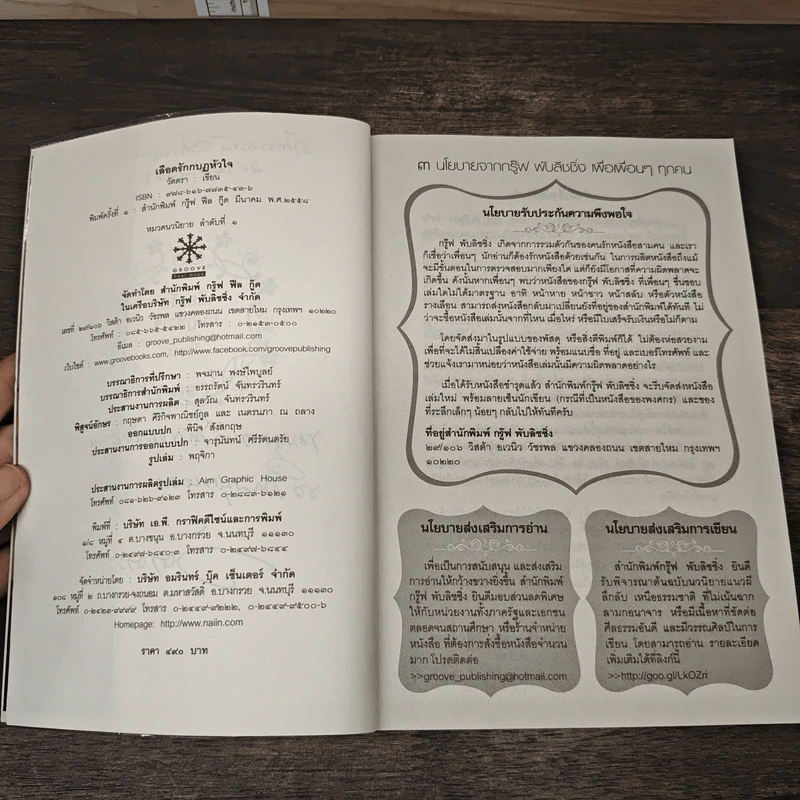 เลือดรักกบฏหัวใจ
วัตตรา : เขียน
ISBN : ๙๗๘-๖๑๖-๗๗๓๕-๔๓-๖
พิมพ์ครั้งที่ ๑ : สำนักพิมพ์ กรู๊ฟ ฟีล กู๊ด มีนาคม พ.ศ.๒๕๕๘
หมวดนวนิยาย ลำดับที่ ๑
GROOVE
จัดทำโดย สำนักพิมพ์ กรู๊ฟ ฟีล กู๊ด
ในเครือบริษัท กรู๊ฟ พับลิชชิ่ง จำกัด
เลขที่ ๒๙/๑๐๖ วิสต้า อเวนิว วัชรพล แขวงคลองถนน เขตสายไหม กรุงเทพฯ ๑๐๒๒๐
โทรศัพท์ : ๐๘๕-๖๖๕-๕๔๒๒ โทรสาร : ๐-๒๑๕๓-๐๕๐๐
อีเมล : groove_publishing@hotmail.com
เว็บไซต์ : www.groovebooks.com, http://www.facebook.com/groovepublishing
บรรณาธิการที่ปรึกษา : พจมาน พงษ์ไพบูลย์
บรรณาธิการสำนักพิมพ์ : อรรถรัตน์ จันทรวรินทร์
ประสานงานการผลิต : สุลวัณ จันทรวรินทร์
พิสูจน์อักษร : กฤษดา ศิริกิจพาณิชย์กูล และ เนตรนภา ณ ถลาง
ออกแบบปก : พินิจ สังสกฤษ
ประสานงานการออกแบบปก : จารุนันทน์ ศรีรัตนตรัย
รูปเล่ม : พฤจิกา
ประสานงานการผลิตรูปเล่ม : Aim Graphic House
โทรศัพท์ ๐๘๑-๖๒๖-๙๑๒๓ โทรสาร ๐-๒๘๘๓-๖๑๒๑
พิมพ์ที่ : บริษัท เอ.พี. กราฟิคดีไซน์และการพิมพ์
๑/๘ หมู่ที่ ๔ ต.บางขนุน อ.บางกรวย จ.นนทบุรี ๑๑๑๓๐
โทรศัพท์ ๐-๒๔๙๗-๖๘๔๐-๓ โทรสาร ๐-๒๔๙๗-๖๘๔๔
จัดจำหน่ายโดย : บริษัท อมรินทร์ บุ๊ค เซ็นเตอร์ จำกัด
๑๐๘ หมู่ที่ ๒ ถ.บางกรวย-จงถนอม ต.มหาสวัสดิ์ อ.บางกรวย จ.นนทบุรี ๑๑๑๓๐
โทรศัพท์ ๐-๒๔๒๓-๙๙๙๙ โทรสาร ๐-๒๔๔๙-๙๒๒๒, ๐-๒๔๔๙-๙๕๐๐-๖
Homepage: http://www.naiin.com
ราคา ๔๙๐ บาท
๓ นโยบายจากกรู๊ฟ พับลิชชิ่ง เพื่อเพื่อนๆ ทุกคน
นโยบายรับประกันความพึงพอใจ
กรู๊ฟ พับลิชชิ่ง เกิดจากการรวมตัวกันของคนรักหนังสือสามคน และเรา
ก็เชื่อว่าเพื่อนๆ นักอ่านก็ต้องรักหนังสือด้วยเช่นกัน ในการผลิตหนังสือถึงแม้
จะมีขั้นตอนในการตรวจสอบมากเพียงใด แต่ก็ยังมีโอกาสที่ความผิดพลาดจะ
เกิดขึ้น ดังนั้นหากเพื่อนๆ พบว่าหนังสือของกรู๊ฟ พับลิชชิ่ง ที่เพื่อนๆ ชื่นชอบ
เล่มใดไม่ได้มาตรฐาน อาทิ หน้าหาย หน้าขาว หน้าสลับ หรือตัวหนังสือ
รางเลือน สามารถส่งหนังสือกลับมาเปลี่ยนยังที่อยู่ของสำนักพิมพ์ได้ทันที ไม่
ว่าจะซื้อหนังสือเล่มนั้นจากที่ไหน เมื่อไหร่ หรือมีใบเสร็จรับเงินหรือไม่ก็ตาม
โดยจัดส่งมาในรูปแบบของพัสดุ หรือสิ่งตีพิมพ์ก็ได้ ไม่ต้องห่อสวยงาม
เพื่อที่จะได้ไม่สิ้นเปลืองค่าใช้จ่าย พร้อมแนบชื่อ ที่อยู่ และเบอร์โทรศัพท์ และ
ช่วยแจ้งเรามาหน่อยว่าหนังสือเล่มนั้นมีความผิดพลาดอย่างไร
เมื่อได้รับหนังสือชำรุดแล้ว สำนักพิมพ์กรู๊ฟ พับลิชชิ่ง จะรีบจัดส่งหนังสือ
เล่มใหม่ พร้อมลายเซ็นนักเขียน (กรณีที่เป็นหนังสือของพงศกร) และของ
ที่ระลึกเล็กๆ น้อยๆ กลับไปให้ทันทีครับ
ที่อยู่สำนักพิมพ์ กรู๊ฟ พับลิชชิ่ง
๒๙/๑๐๖ วิสต้า อเวนิว วัชรพล แขวงคลองถนน เขตสายไหม กรุงเทพฯ
๑๐๒๒๐
นโยบายส่งเสริมการอ่าน
เพื่อเป็นการสนับสนุน และส่งเสริม
การอ่านให้กว้างขวางยิ่งขึ้น สำนักพิมพ์
กรู๊ฟ พับลิชชิ่ง ยินดีมอบส่วนลดพิเศษ
ให้กับหน่วยงานทั้งภาครัฐและเอกชน
ตลอดจนสถานศึกษา หรือร้านจำหน่าย
หนังสือ ที่ต้องการสั่งซื้อหนังสือจำนวน
มาก โปรดติดต่อ
>>groove_publishing@hotmail.com
นโยบายส่งเสริมการเขียน
สำนักพิมพ์กรู๊ฟ พับลิชชิ่ง ยินดี
รับพิจารณาต้นฉบับนวนิยายแนวผี
ลึกลับ เหนือธรรมชาติ ที่ไม่เน้นฉาก
ลามกอนาจาร หรือมีเนื้อหาที่ขัดต่อ
ศีลธรรมอันดี และมีวรรณศิลป์ในการ
เขียน โดยสามารถอ่าน รายละเอียด
เพิ่มเติมได้ที่ลิงก์นี้
>>http://goo.gl/LkOZri